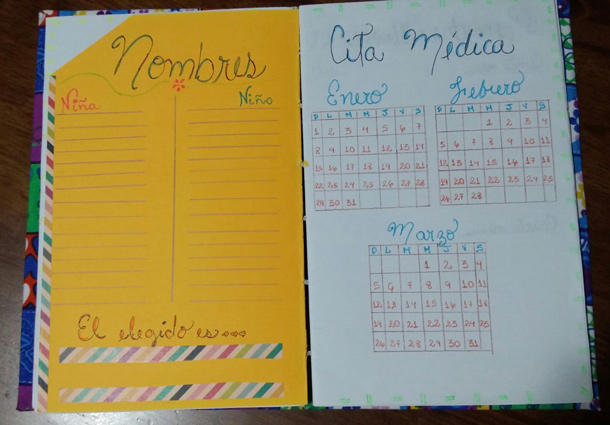 Nombres
Niña
Niño
El elegido es...
Cita Médica
Enero
D L M M J V S
1 2 3 4 5 6 7
8 9 10 11 12 13 14
15 16 17 18 19 20 21
22 23 24 25 26 27 28
29 30 31
Febrero
D L M M J V S
1 2 3 4
5 6 7 8 9 10 11
12 13 14 15 16 17 18
19 20 21 22 23 24 25
26 27 28
Marzo
D L M M J V S
1 2 3 4
5 6 7 8 9 10 11
12 13 14 15 16 17 18
19 20 21 22 23 24 25
26 27 28 29 30 31